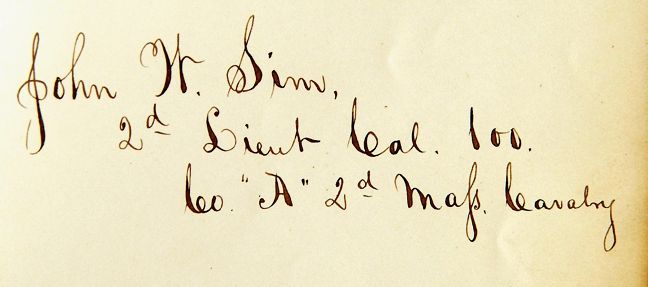 John W. Sim,
2d Lieut Cal. 100.
Co. "A" 2d Mass. Cavalry